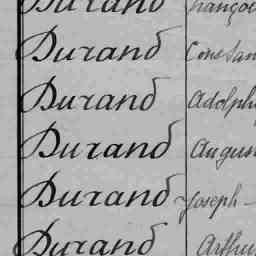 Durand
Durand
Durand Adolph
Durand August
Durand Joseph
Durand Arthu